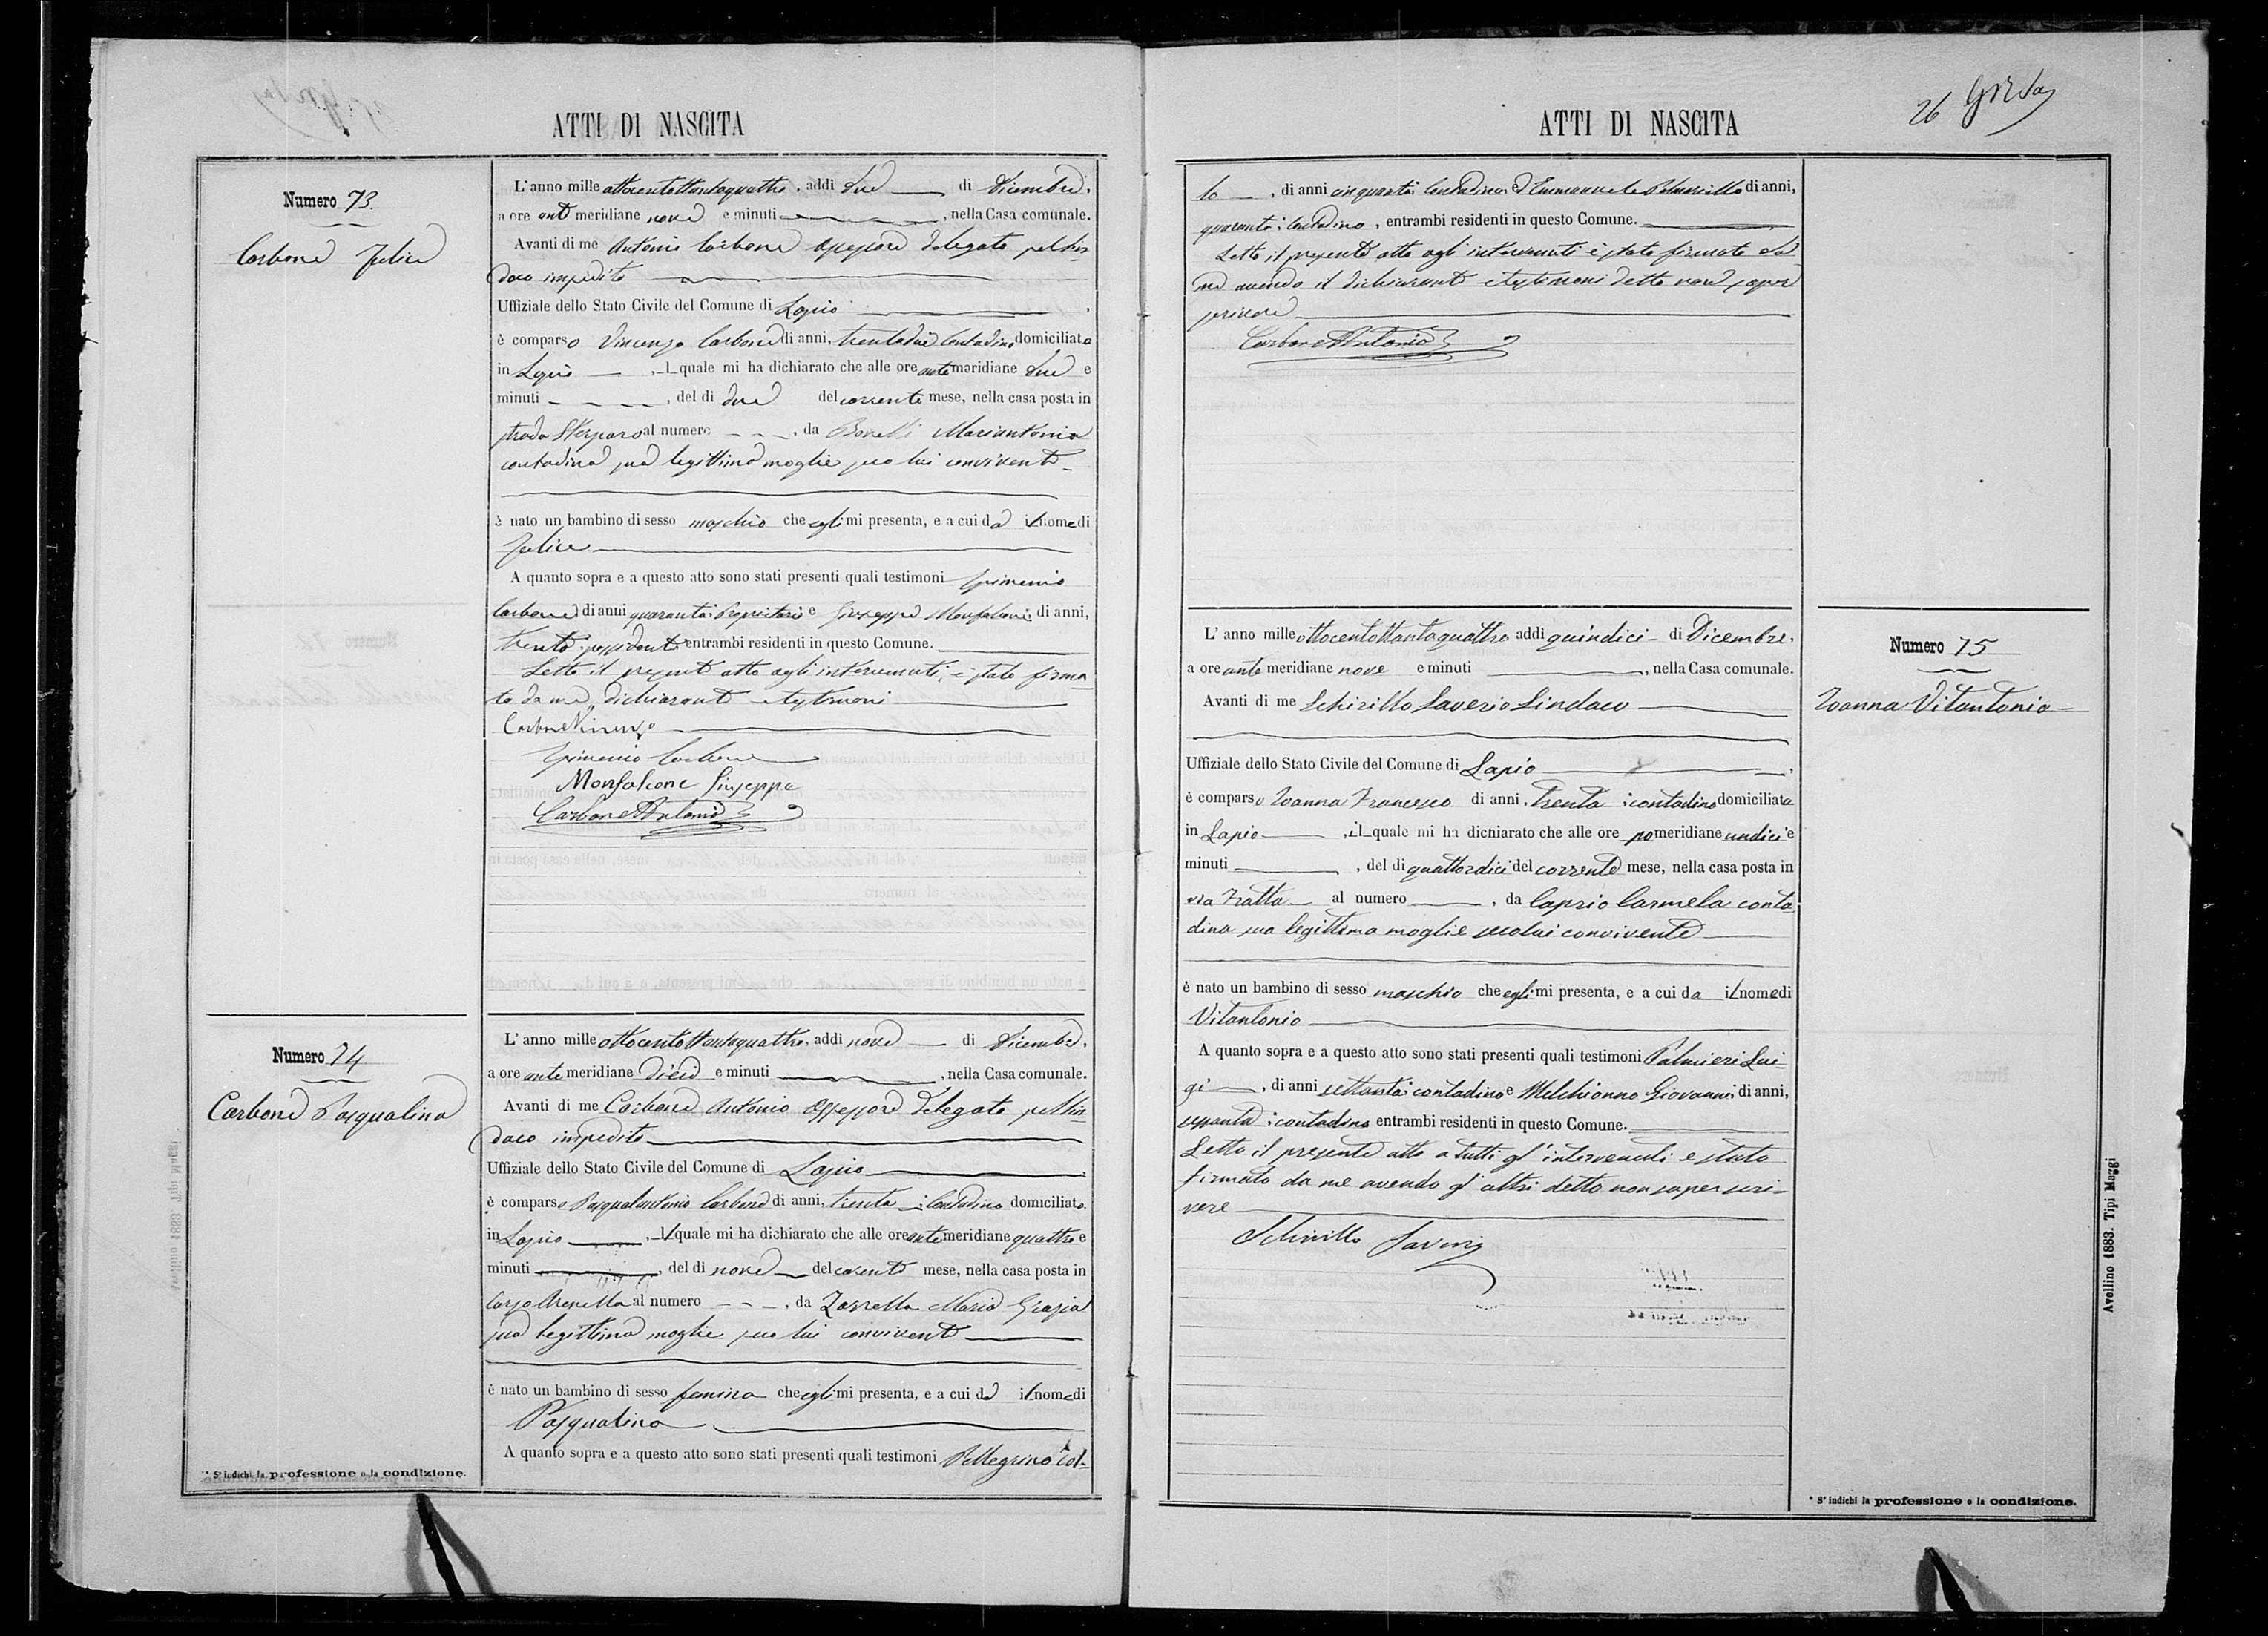 ATTI DI NASCITA
Numero 73.
Carbone Felice
L'anno mille ottocentottantaquattro, addi due di Dicembre,
a ore ant meridiane nove e minuti , nella Casa comunale.
Avanti di me Antonio Carbone Assessore delegato pel Sin-
daco impedito
Uffiziale dello Stato Civile del Comune di Lapio
è comparso Vincenzo Carbone di anni, trentadue Contadino domiciliato
in Lapio , il quale mi ha dichiarato che alle ore ante meridiane due e
minuti , del di due del corrente mese, nella casa posta in
strada al numero , da Mariantonia
contadina sua legittima moglie seco lui convivente
è nato un bambino di sesso maschio che egli mi presenta, e a cui da il nome di
Felice
A quanto sopra e a questo atto sono stati presenti quali testimoni
Carbone di anni quaranta Proprietario e Giuseppe Monfalcone di anni,
trenta possidente entrambi residenti in questo Comune.
Letto il presente atto agli intervenuti, è stato firma-
to da me, dichiarante e testimoni
Carbone Vincenzo
Carbone
Monfalcone Giuseppe
Carbone Antonio
Numero 74
Carbone Pasqualina
L'anno mille ottocentottantaquattro, addi nove di Dicembre,
a ore ante meridiane dieci e minuti , nella Casa comunale.
Avanti di me Carbone Antonio Assessore delegato pel Sin-
daco impedito
Uffiziale dello Stato Civile del Comune di Lapio
è comparso Pasqualantonio Carbone di anni, trenta Contadino domiciliato
in Lapio , il quale mi ha dichiarato che alle ore ante meridiane quattro e
minuti , del di nove del corrente mese, nella casa posta in
Largo al numero , da Zarrella Maria Grazia
sua legittima moglie seco lui convivente
è nato un bambino di sesso femina che egli mi presenta, e a cui da il nome di
Pasqualina
A quanto sopra e a questo atto sono stati presenti quali testimoni Pellegrino Col-
* S'indichi la professione o la condizione.
ATTI DI NASCITA
26
lo , di anni cinquanta Contadino e Emmanuele di anni,
quaranta Contadino, entrambi residenti in questo Comune.
Letto il presente atto agli intervenuti è stato firmato da
me avendo il dichiarante e testimoni detto non sapere
scrivere
Carbone Antonio
L'anno mille ottocentottantaquattro addi quindici di Dicembre,
a ore ante meridiane nove e minuti , nella Casa comunale.
Avanti di me Schirillo Saverio Sindaco
Uffiziale dello Stato Civile del Comune di Lapio
è comparso Ioanna Francesco di anni, trenta contadino domiciliato
in Lapio , il quale mi ha dichiarato che alle ore pomeridiane undici e
minuti , del di quattordici del corrente mese, nella casa posta in
via Fratta al numero , da Caprio Carmela conta-
dina sua legittima moglie seco lui convivente
è nato un bambino di sesso maschio che egli mi presenta, e a cui da il nome di
Vitantonio
A quanto sopra e a questo atto sono stati presenti quali testimoni Palmieri Lui-
gi , di anni settanta contadino e Melchionno Giovanni di anni,
sessanta contadino entrambi residenti in questo Comune.
Letto il presente atto a tutti gl'intervenuti è stato
firmato da me avendo gl'altri detto non saper scri-
vere
Schirillo Saverio
Numero 75
Ioanna Vitantonio
* S'indichi la professione o la condizione.
Avellino 1883. Tipi Maggi